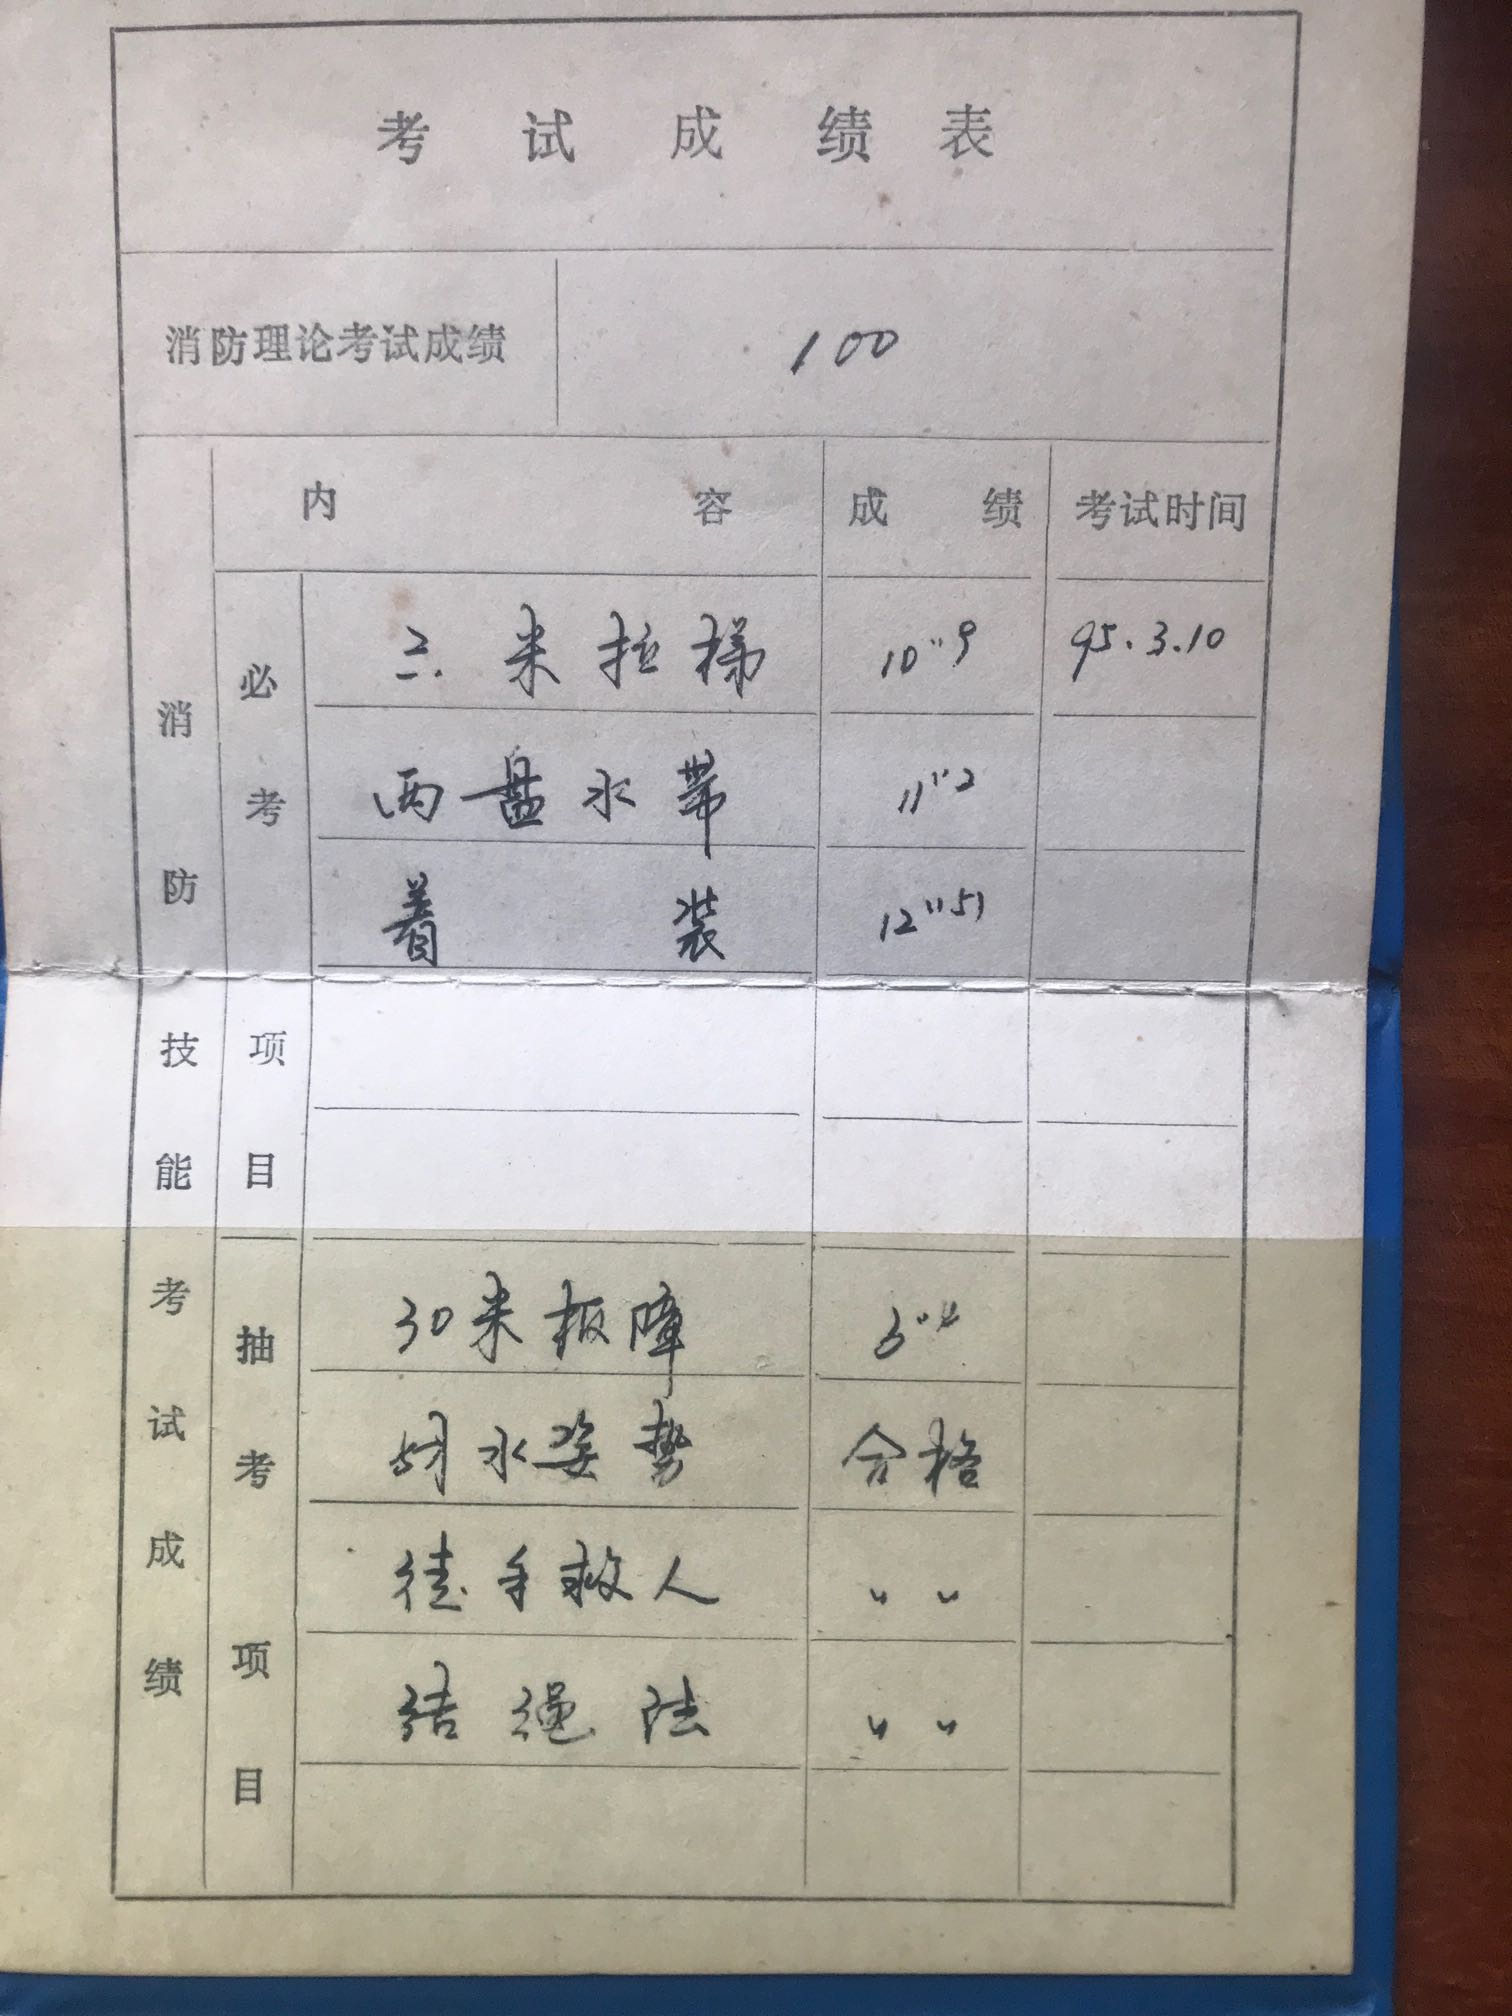 考试成绩表
消防理论考试成绩 100
消防技能考试成绩
内容 成绩 考试时间
必考项目
米拉梯 10"9 95.3.10
两盘水带 11"2
着装 12"51
抽考项目
30米板障
射水姿势 合格
徒手救人 〃 〃
结绳法 〃 〃